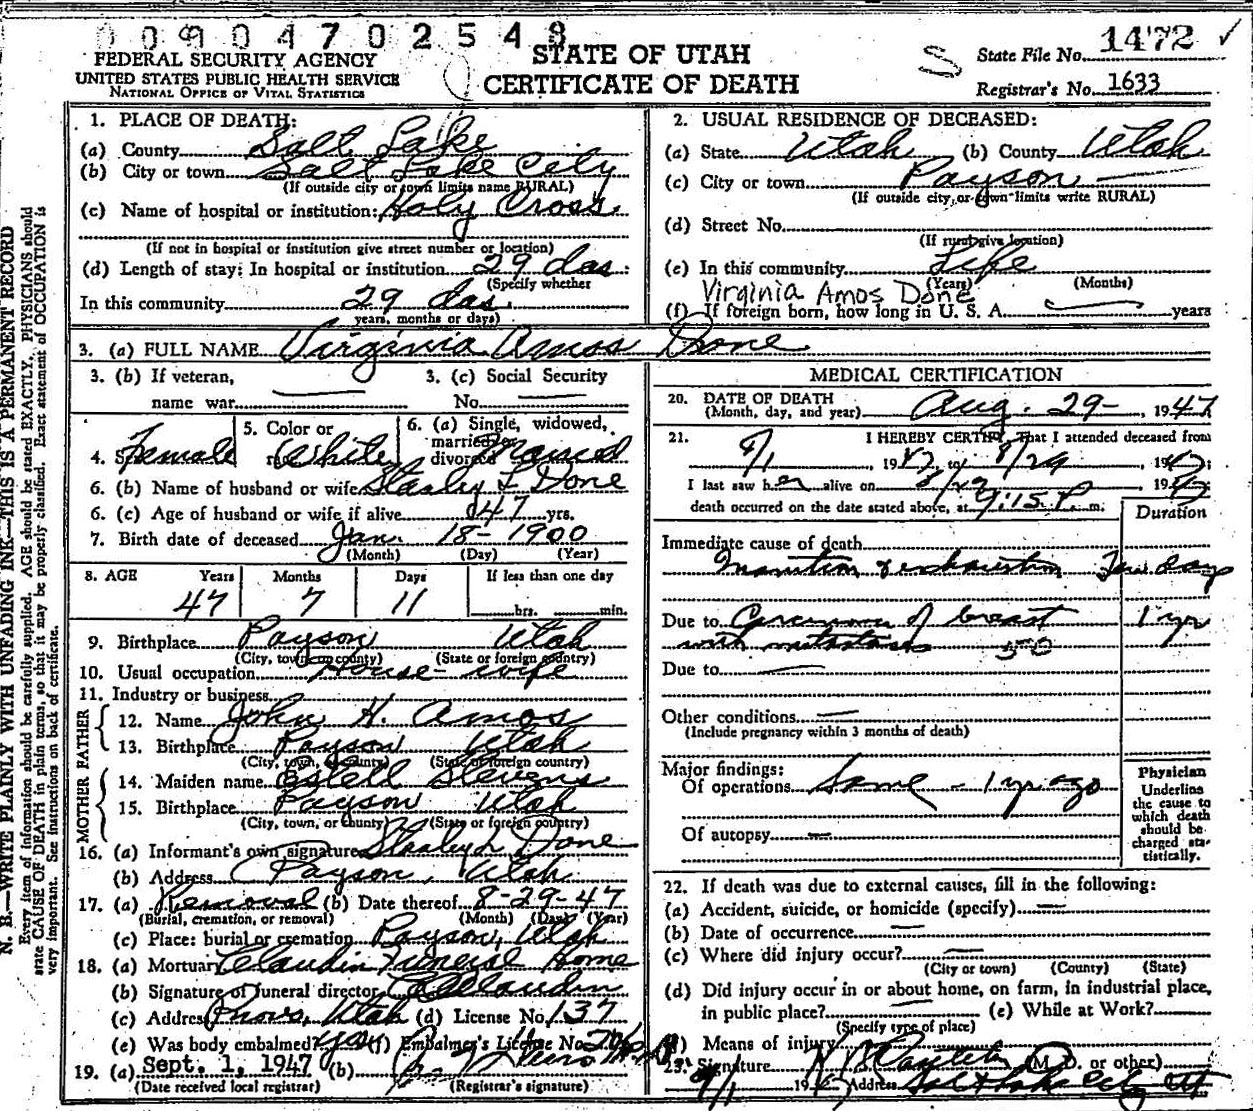 0090470254 8
FEDERAL SECURITY AGENCY
UNITED STATES PUBLIC HEALTH SERVICE
NATIONAL OFFICE OF VITAL STATISTICS
STATE OF UTAH
CERTIFICATE OF DEATH
S
State File No. 1472 ✓
Registrar's No. 1633
N. B.—WRITE PLAINLY WITH UNFADING INK—THIS IS A PERMANENT RECORD
Every item of information should be carefully supplied. AGE should be stated EXACTLY. PHYSICIANS should
state CAUSE OF DEATH in plain terms, so that it may be properly classified. Exact statement of OCCUPATION is
very important. See instructions on back of certificate.
1. PLACE OF DEATH:
(a) County Salt Lake
(b) City or town Salt Lake City
(If outside city or town limits name RURAL)
(c) Name of hospital or institution: Holy Cross
(If not in hospital or institution give street number or location)
(d) Length of stay: In hospital or institution 29 das.
(Specify whether
In this community 29 das.
years, months or days)
2. USUAL RESIDENCE OF DECEASED:
(a) State Utah (b) County Utah
(c) City or town Payson
(If outside city or town limits write RURAL)
(d) Street No.
(If rural give location)
(e) In this community Life
(Years) (Months)
Virginia Amos Done
(f) If foreign born, how long in U. S. A. years
3. (a) FULL NAME Virginia Amos Done
3. (b) If veteran, name war
3. (c) Social Security No.
4. Sex Female
5. Color or race White
6. (a) Single, widowed, married or divorced Married
6. (b) Name of husband or wife Stanley L Done
6. (c) Age of husband or wife if alive 47 yrs.
7. Birth date of deceased Jan. 18- 1900
(Month) (Day) (Year)
8. AGE Years Months Days If less than one day
47 7 11 hrs. min.
9. Birthplace Payson Utah
(City, town or county) (State or foreign country)
10. Usual occupation House-wife
11. Industry or business
FATHER
12. Name John H. Amos
13. Birthplace Payson Utah
(City, town, or county) (State or foreign country)
MOTHER
14. Maiden name Estell Stevens
15. Birthplace Payson Utah
(City, town, or county) (State or foreign country)
16. (a) Informant's own signature Stanley L Done
(b) Address Payson, Utah
17. (a) Removal (b) Date thereof 8-29-47
(Burial, cremation, or removal) (Month) (Day) (Year)
(c) Place: burial or cremation Payson, Utah
18. (a) Mortuary Claudin Funeral Home
(b) Signature of funeral director Claudin
(c) Address Provo, Utah (d) License No. 137
(e) Was body embalmed? yes (f) Embalmer's License No.
19. (a) Sept. 1, 1947 (b)
(Date received local registrar) (Registrar's signature)
MEDICAL CERTIFICATION
20. DATE OF DEATH
(Month, day, and year) Aug. 29-, 1947
21. I HEREBY CERTIFY, That I attended deceased from
8/1, 1947, to 8/29, 1947;
I last saw her alive on 8/29, 1947
death occurred on the date stated above, at 9:15 P. m.
Duration
Immediate cause of death
Inanition & exhaustion Few days
Due to Carcinoma of breast 1 yr
with metastases 50
Due to
Other conditions
(Include pregnancy within 3 months of death)
Major findings:
Of operations Same - 1 yr ago
Of autopsy
Physician
Underline
the cause to
which death
should be
charged sta-
tistically.
22. If death was due to external causes, fill in the following:
(a) Accident, suicide, or homicide (specify)
(b) Date of occurrence
(c) Where did injury occur?
(City or town) (County) (State)
(d) Did injury occur in or about home, on farm, in industrial place,
in public place? (e) While at Work?
(Specify type of place)
(f) Means of injury
23. Signature (M. D. or other)
9/1 194 Address Salt Lake City Ut